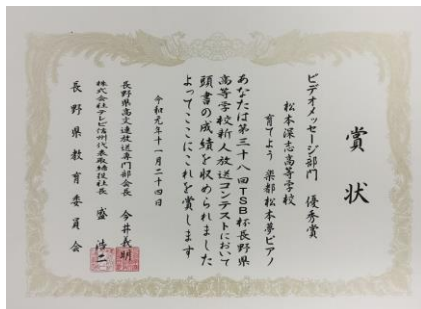 賞状
ビデオメッセージ部門 優秀賞
松本深志高等学校
育てよう 楽都松本夢ピアノ
あなたは第三十八回TSB杯長野県
高等学校新人放送コンテストにおいて
頭書の成績を収められました
よってここにこれを賞します
令和元年十一月二十四日
長野県高文連放送専門部会長 今井義明
株式会社テレビ信州代表取締役社長 盛浩二
長野県教育委員会